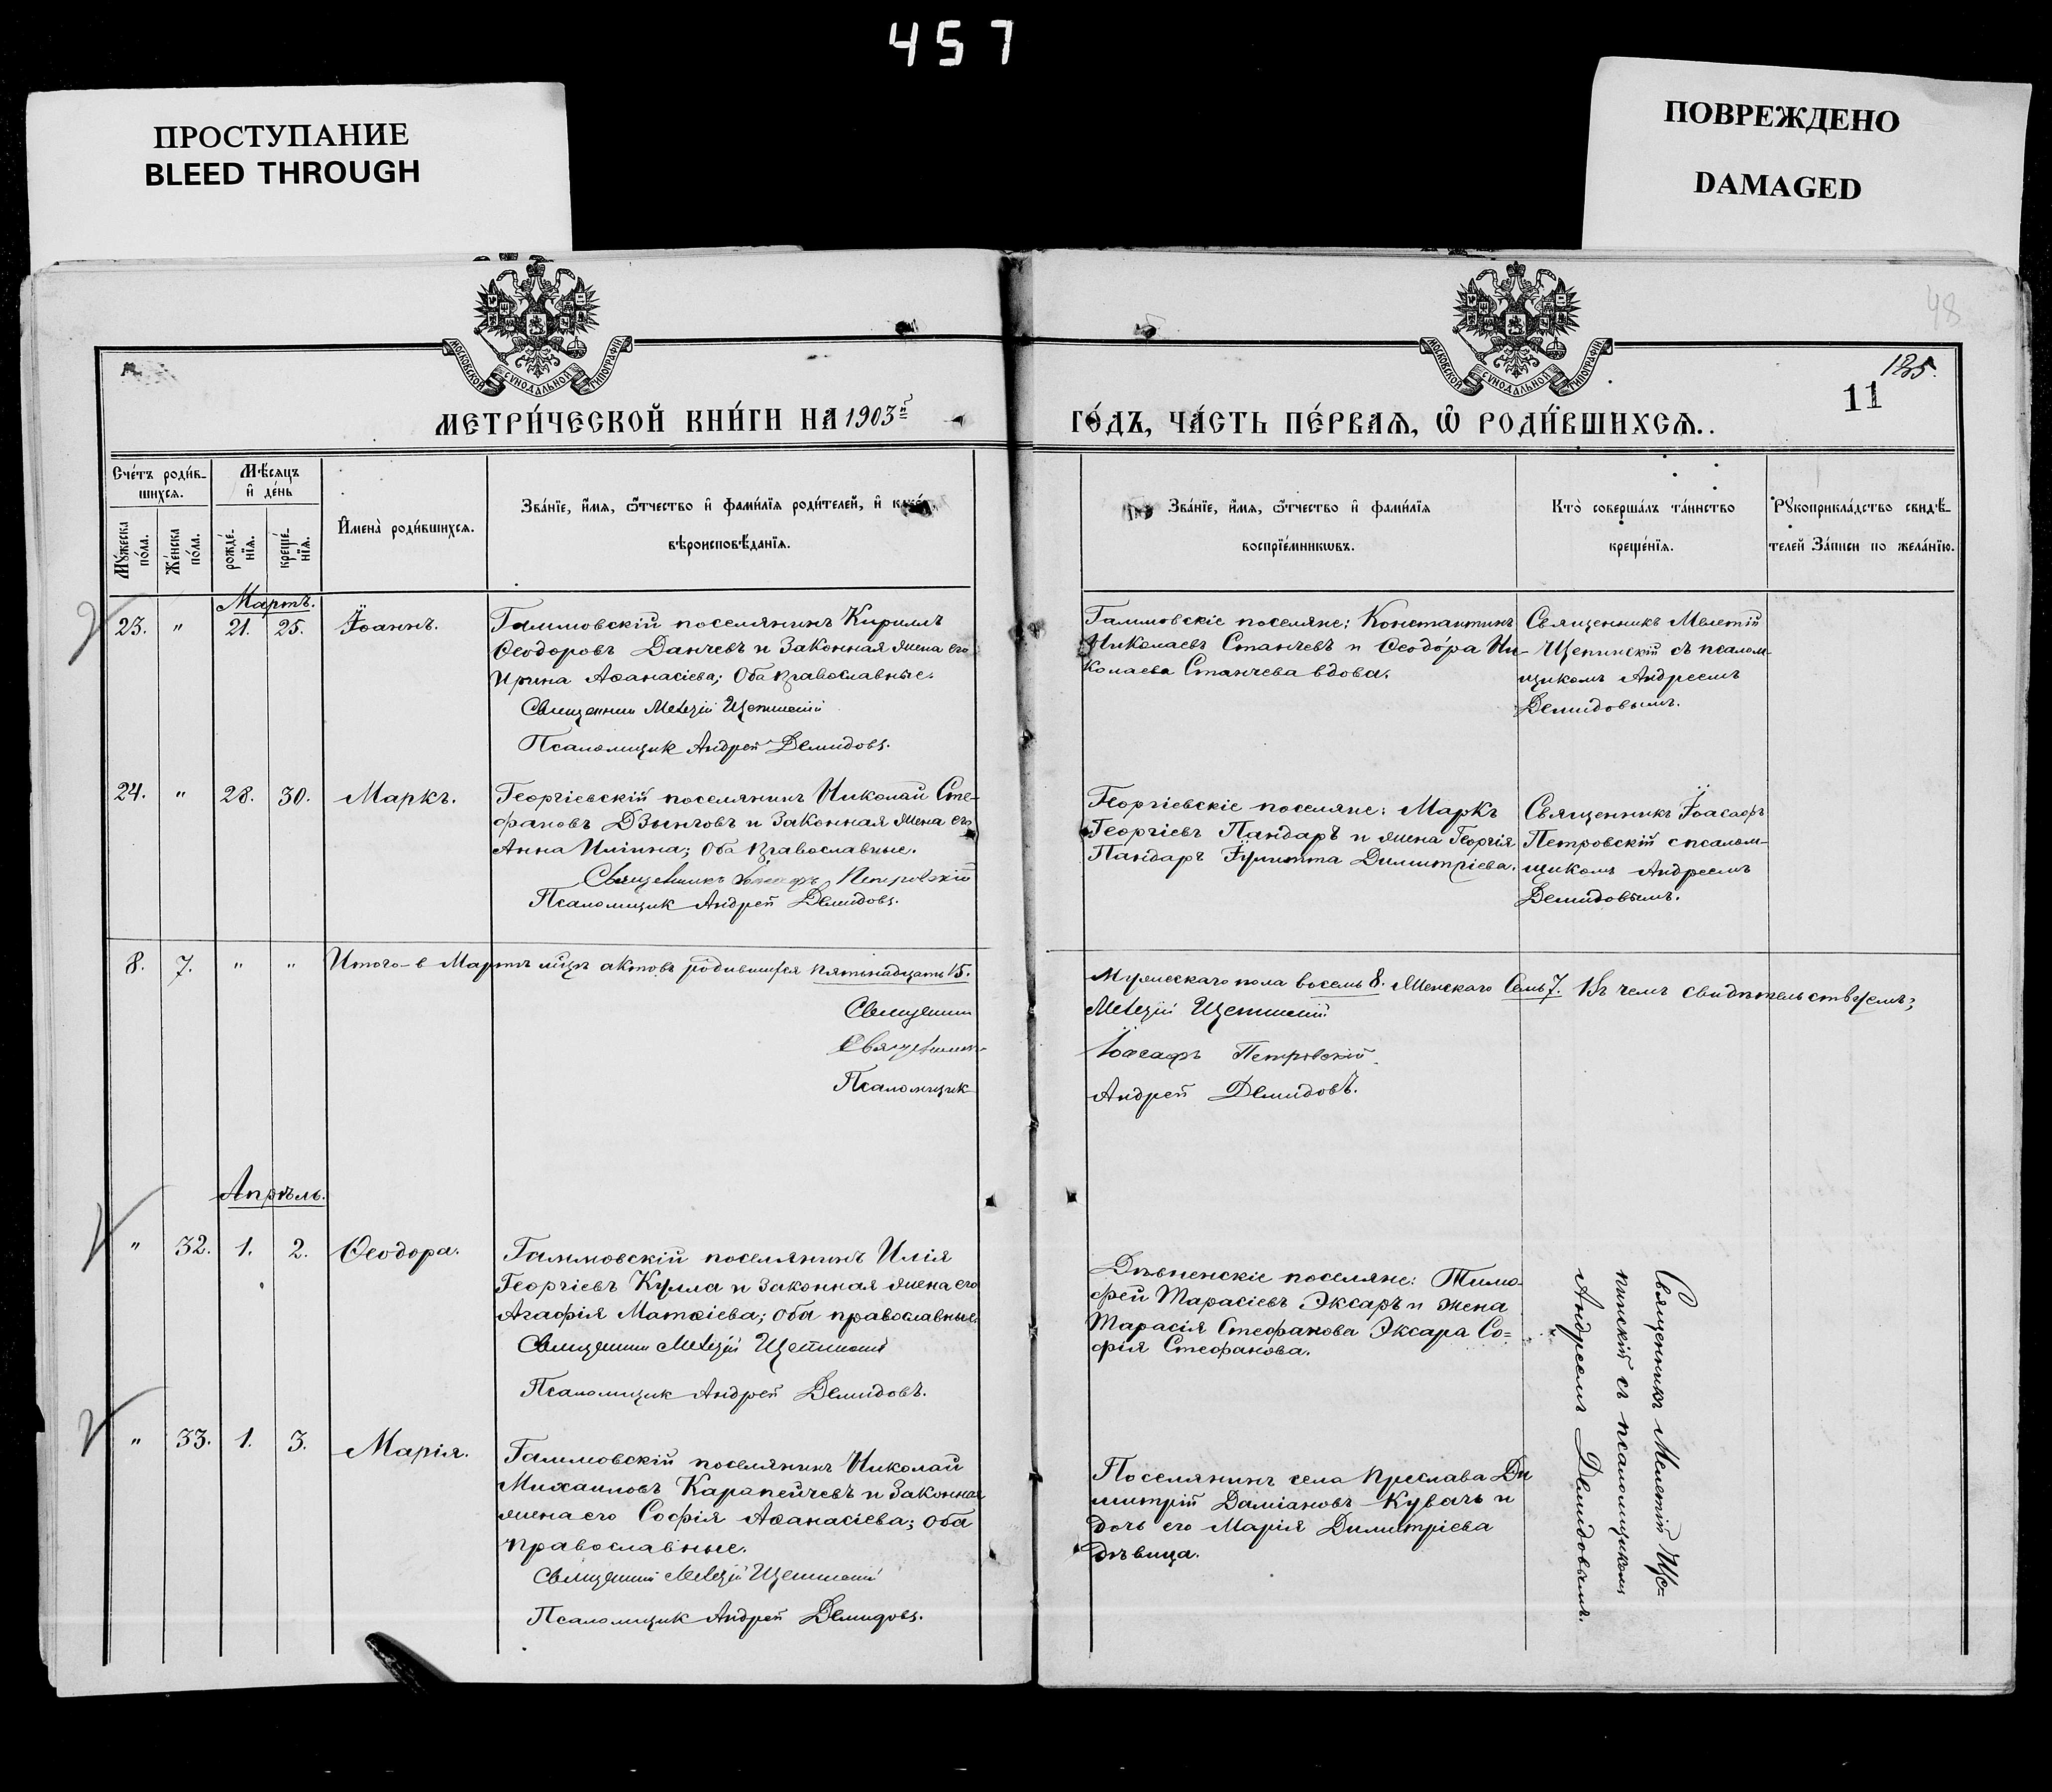 457
ПРОСТУПАНИЕ
BLEED THROUGH
ПОВРЕЖДЕНО
DAMAGED
48
125.
11
МОСКОВСКОЙ СѴНОДАЛЬНОЙ ТИПОГРАФІИ
МОСКОВСКОЙ СѴНОДАЛЬНОЙ ТИПОГРАФІИ
МЕТРИ́ЧЕСКОЙ КНИ́ГИ НА 1903й
ГО́ДЪ, ЧА́СТЬ ПЕ́РВАѦ, Ѡ҆ РОДИ́ВШИХСѦ.
Сче́тъ роди́в-
шихсѧ.
Мꙋ́жеска по́ла.
Же́нска по́ла.
Мѣ́сѧцъ
и҆ де́нь
рожде́-
нїѧ.
креще́-
нїѧ.
И҆мена̀ роди́вшихсѧ.
Зва́нїе, и҆́мѧ, ѻ҆́тчество и҆ фами́лїѧ роди́телей, и҆ како́й
вѣроисповѣ́данїѧ.
Зва́нїе, и҆́мѧ, ѻ҆́тчество и҆ фами́лїѧ
воспрїе́мникѡвъ.
Кто̀ соверша́лъ та́инство
креще́нїѧ.
Рꙋкоприкла́дство свидѣ́-
телей за́писи по жела́нїю.
Мартъ.
23. " 21. 25. Іоаннъ.
Гаммовскій поселянинъ Кириллъ
Ѳеодоровъ Данчевъ и законная жена его
Ирина Аѳанасіева; оба православные.
Священник Мелетій Щепинский
Псаломщик Андрей Демидовъ.
Гаммовскіе поселяне: Константинъ
Николаевъ Станчевъ и Ѳеодора Ни-
колаева Станчева вдова.
Священникъ Мелетій
Щепинскій съ псалом-
щикомъ Андреемъ
Демидовымъ.
24. " 28. 30. Маркъ.
Георгіевскій поселянинъ Николай Сте-
фановъ Дзынговъ и законная жена его
Анна Иліина; оба православные.
Священникъ Іоасафъ Петровскій
Псаломщик Андрей Демидовъ.
Георгіевскіе поселяне: Маркъ
Георгіевъ Пандаръ и жена Георгія
Пандаръ Іулитта Димитріева.
Священникъ Іоасафъ
Петровскій с псалом-
щикомъ Андреемъ
Демидовымъ.
8. 7. " " Итого в Мартѣ мцѣ актовъ родившихся пятнадцать 15.
Мужескаго пола восемь 8. Женскаго семь 7. Въ чемъ свидѣтельствуемъ:
Священник Мелетій Щепинский
Священник Іоасафъ Петровскій
Псаломщик Андрей Демидовъ.
Апрѣль.
" 32. 1. 2. Ѳеодора.
Гаммовскій поселянинъ Илія
Георгіевъ Кулла и законная жена его
Агафія Матѳіева; оба православные.
Священник Мелетій Щепинский
Псаломщик Андрей Демидовъ.
Дѣвненскіе поселяне: Тимо-
фей Тарасіевъ Эксаръ и жена
Тарасія Стефанова Эксара Со-
фія Стефанова.
Священникъ Мелетій Ще-
пинскій съ псаломщикомъ
Андреемъ Демидовымъ.
" 33. 1. 3. Марія.
Гаммовскій поселянинъ Николай
Михаиловъ Карапейчевъ и законная
жена его Софія Аѳанасіева; оба
православные.
Священник Мелетій Щепинский
Псаломщик Андрей Демидовъ.
Поселянинъ села Преслава Ди
митрій Даміановъ Кувачъ и
дочь его Марія Димитріева
дѣвица.